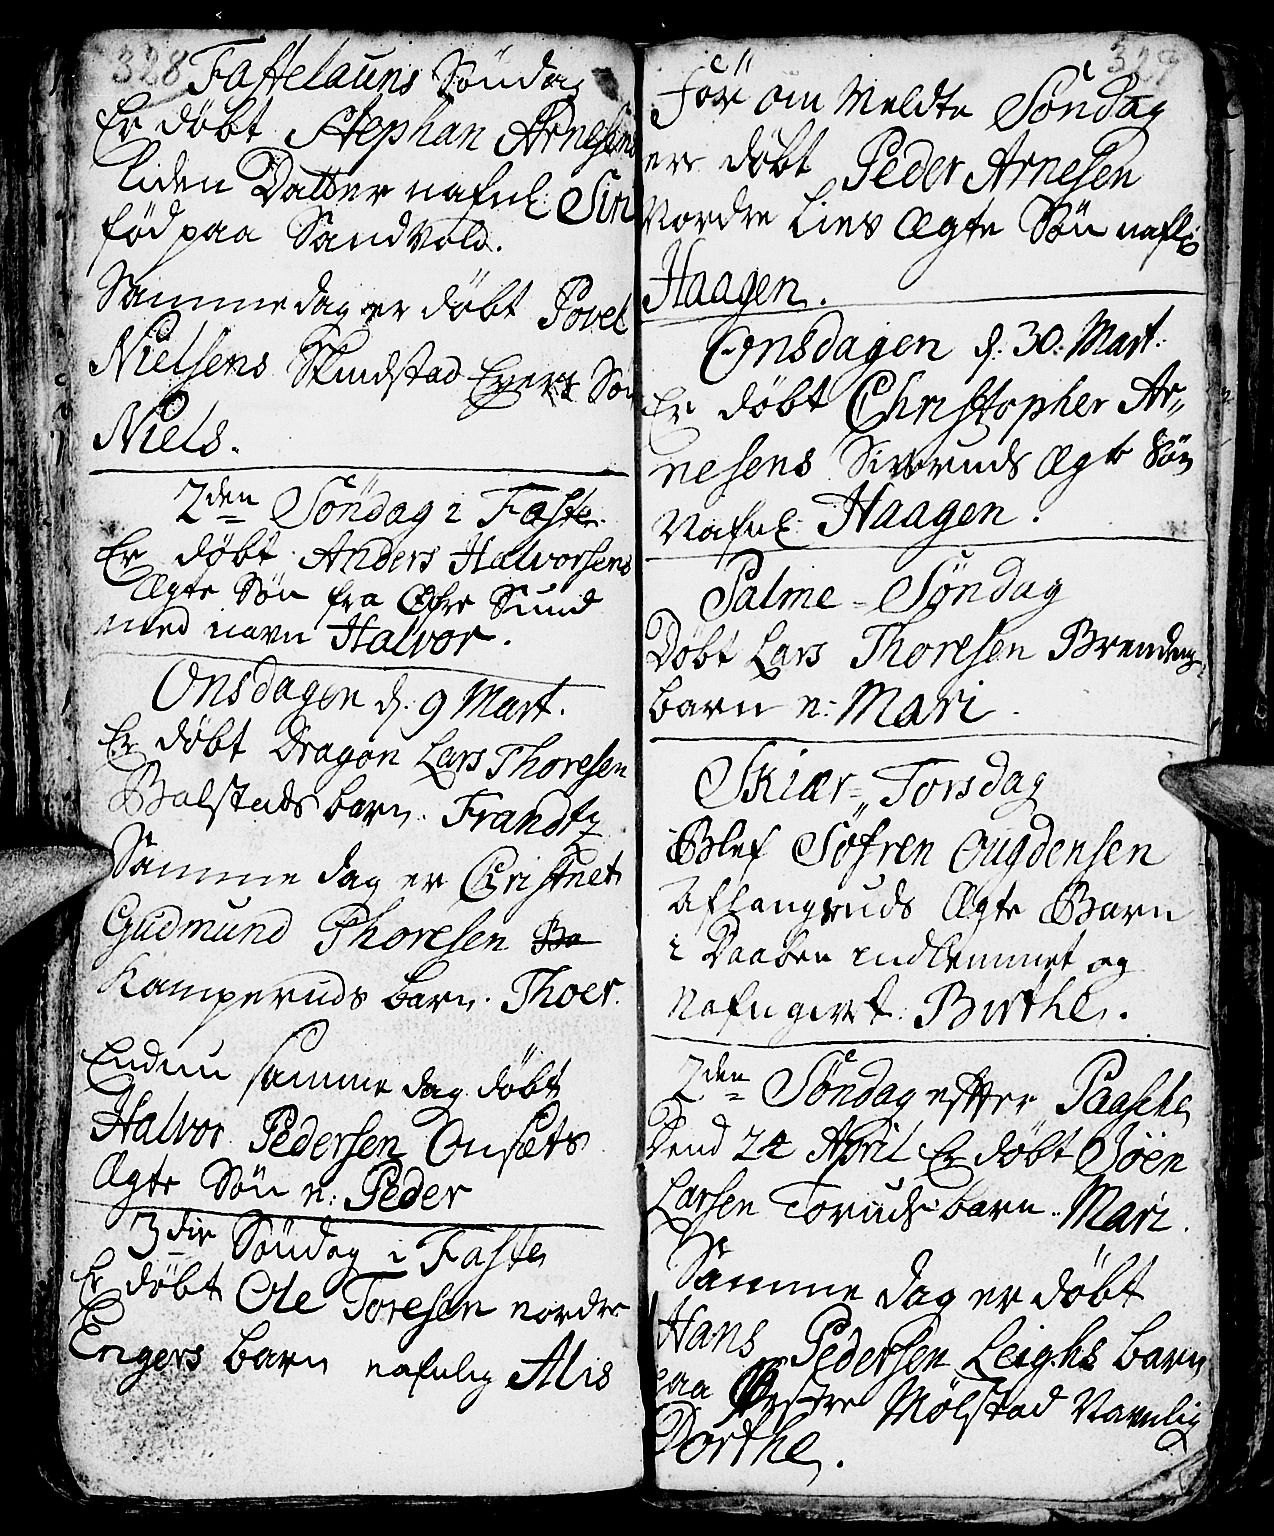 328
Fastelauns Søndag
Er døbt Stephan Arnesens
liden Datter nafnl: Siri
fød paa Sandvold.
Samme dag er døbt Povel
Nielsens Skindstad Egte Søn
Niels.
2den Søndag i Faste
Er døbt Anders Halvorsens
Ægte Søn fra Øfre Sund
med navn Halvor.
Onsdagen d. 9 Mart.
Er døbt Dragon Lars Thoresen
Bolstads barn. Frandtz
Samme dag er Christnet
Gudmund Thoresen Ba
Kamperuds barn. Thoer.
Endnu samme dag døbt
Halvor Pedersen Onsets
Ægte Søn n: Peder
3die Søndag i Faste
Er døbt Ole Toresen nordre
Engers barn nafnlig Alis
329
Før om Meldte Søndag
er døbt Peder Arnesen
Nordre Lies Ægte Søn nafl:
Haagen.
Onsdagen d. 30. Mart.
Er døbt Christopher Ar„
nesens Siveruds Ægte Søn
Nafnl. Haagen.
Palme-Søndag
Døbt Lars Thoresen Brenden
barn n: Mari
Skiær-Torsdag
Blef Søfren Ougdensen
Aslangruds Ægte Barn
i Daaben indlemmet og
Nafngivet: Birthe.
2den Søndag effter Paasche
Dend 24 April Er døbt Jøen
Larsen Toruds barn. Mari.
Samme dag er døbt
Hans Pedersen Leighs barn
paa Østre Mølstad Navnlig
Dorthe.